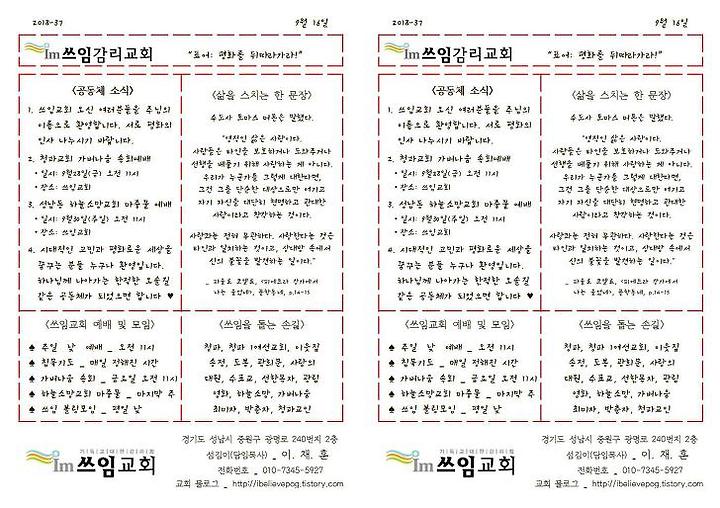 2018-37
9월 16일
Im쓰임감리교회
"표어: 평화를 뒤따라가라!"
<공동체 소식>
1. 쓰임교회 오신 여러분들을 주님의
이름으로 환영합니다. 서로 평화의
인사 나누시기 바랍니다.
2. 청파교회 가버나움 속회예배
• 일시: 9월28일(금) 오전 11시
• 장소: 쓰임교회
3. 성남동 하늘소망교회 마중물 예배
• 일시: 9월30일(주일) 오전 11시
• 장소: 쓰임교회
4. 시대적인 고민과 평화로운 세상을
꿈꾸는 분들 누구나 환영입니다.
하나님께 나아가는 한적한 오솔길
같은 공동체가 되었으면 합니다 ♥
<삶을 스치는 한 문장>
수도사 토마스 머튼은 말했다.
"영적인 삶은 사랑이다.
사람들은 타인을 보호하거나 도와주거나
선행을 베풀기 위해 사랑하는 게 아니다.
우리가 누군가를 그렇게 대한다면,
그건 그를 단순한 대상으로만 여기고
자기 자신을 대단히 현명하고 관대한
사람이라고 착각하는 것이다.
사랑과는 전혀 무관하다. 사랑한다는 것은
타인과 일치하는 것이고, 상대방 속에서
신의 불꽃을 발견하는 일이다."
_ 파울로 코엘료, <피에트라 강가에서
나는 울었네>, 문학동네, p.14-15
<쓰임교회 예배 및 모임>
♠ 주일 낮 예배 _ 오전 11시
♠ 침묵기도 _ 매일 정해진 시간
♠ 가버나움 속회 _ 금요일 오전 11시
♠ 하늘소망교회 마중물 _ 마지막 주
♠ 쓰임 볼링모임 _ 평일 낮
<쓰임을 돕는 손길>
청파, 청파 1여선교회, 이음집
송정, 도봉, 광희문, 사랑의
대원, 수표교, 선한목자, 광림
영화, 하늘소망, 가버나움
최미자, 박춘자, 청파교인
기독교대한감리회
Im쓰임교회
경기도 성남시 중원구 광명로 240번지 2층
섬김이(담임목사) _ 이. 재. 훈
전화번호 _ 010-7345-5927
교회 블로그 _ http://ibelievepog.tistory.com
2018-37
9월 16일
Im쓰임감리교회
"표어: 평화를 뒤따라가라!"
<공동체 소식>
1. 쓰임교회 오신 여러분들을 주님의
이름으로 환영합니다. 서로 평화의
인사 나누시기 바랍니다.
2. 청파교회 가버나움 속회예배
• 일시: 9월28일(금) 오전 11시
• 장소: 쓰임교회
3. 성남동 하늘소망교회 마중물 예배
• 일시: 9월30일(주일) 오전 11시
• 장소: 쓰임교회
4. 시대적인 고민과 평화로운 세상을
꿈꾸는 분들 누구나 환영입니다.
하나님께 나아가는 한적한 오솔길
같은 공동체가 되었으면 합니다 ♥
<삶을 스치는 한 문장>
수도사 토마스 머튼은 말했다.
"영적인 삶은 사랑이다.
사람들은 타인을 보호하거나 도와주거나
선행을 베풀기 위해 사랑하는 게 아니다.
우리가 누군가를 그렇게 대한다면,
그건 그를 단순한 대상으로만 여기고
자기 자신을 대단히 현명하고 관대한
사람이라고 착각하는 것이다.
사랑과는 전혀 무관하다. 사랑한다는 것은
타인과 일치하는 것이고, 상대방 속에서
신의 불꽃을 발견하는 일이다."
_ 파울로 코엘료, <피에트라 강가에서
나는 울었네>, 문학동네, p.14-15
<쓰임교회 예배 및 모임>
♠ 주일 낮 예배 _ 오전 11시
♠ 침묵기도 _ 매일 정해진 시간
♠ 가버나움 속회 _ 금요일 오전 11시
♠ 하늘소망교회 마중물 _ 마지막 주
♠ 쓰임 볼링모임 _ 평일 낮
<쓰임을 돕는 손길>
청파, 청파 1여선교회, 이음집
송정, 도봉, 광희문, 사랑의
대원, 수표교, 선한목자, 광림
영화, 하늘소망, 가버나움
최미자, 박춘자, 청파교인
기독교대한감리회
Im쓰임교회
경기도 성남시 중원구 광명로 240번지 2층
섬김이(담임목사) _ 이. 재. 훈
전화번호 _ 010-7345-5927
교회 블로그 _ http://ibelievepog.tistory.com